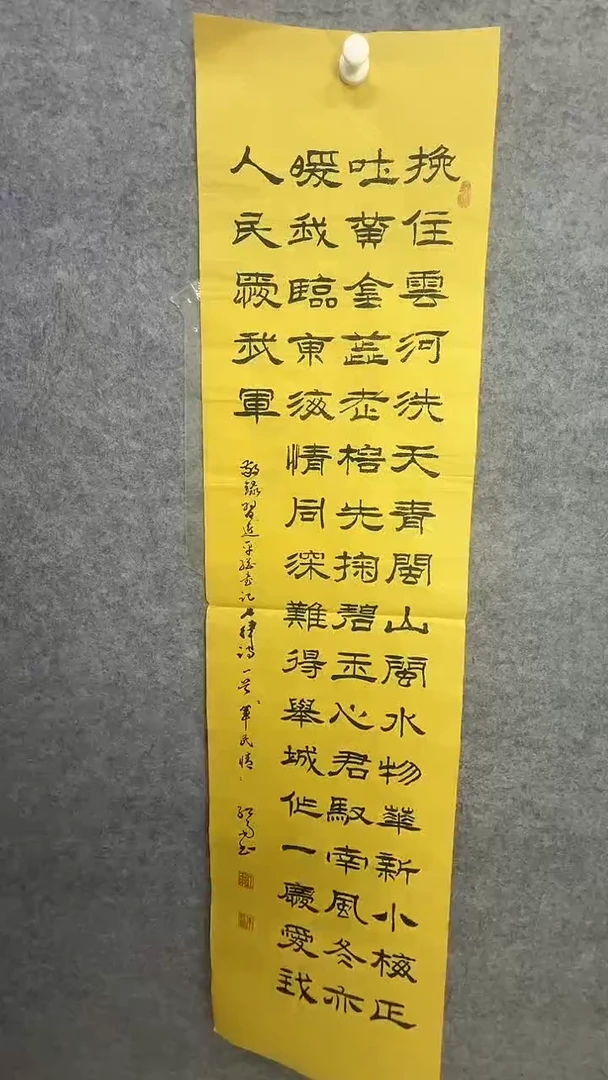 挽住雲河洗天青閩山閩水物華新小梅正
吐黄金蕊老榕先掬碧玉心君馭南風冬亦
暖我臨東海情同深難得舉城作一慶愛我
人民愛我軍
敬錄習近平總書記七律詩一首軍民情